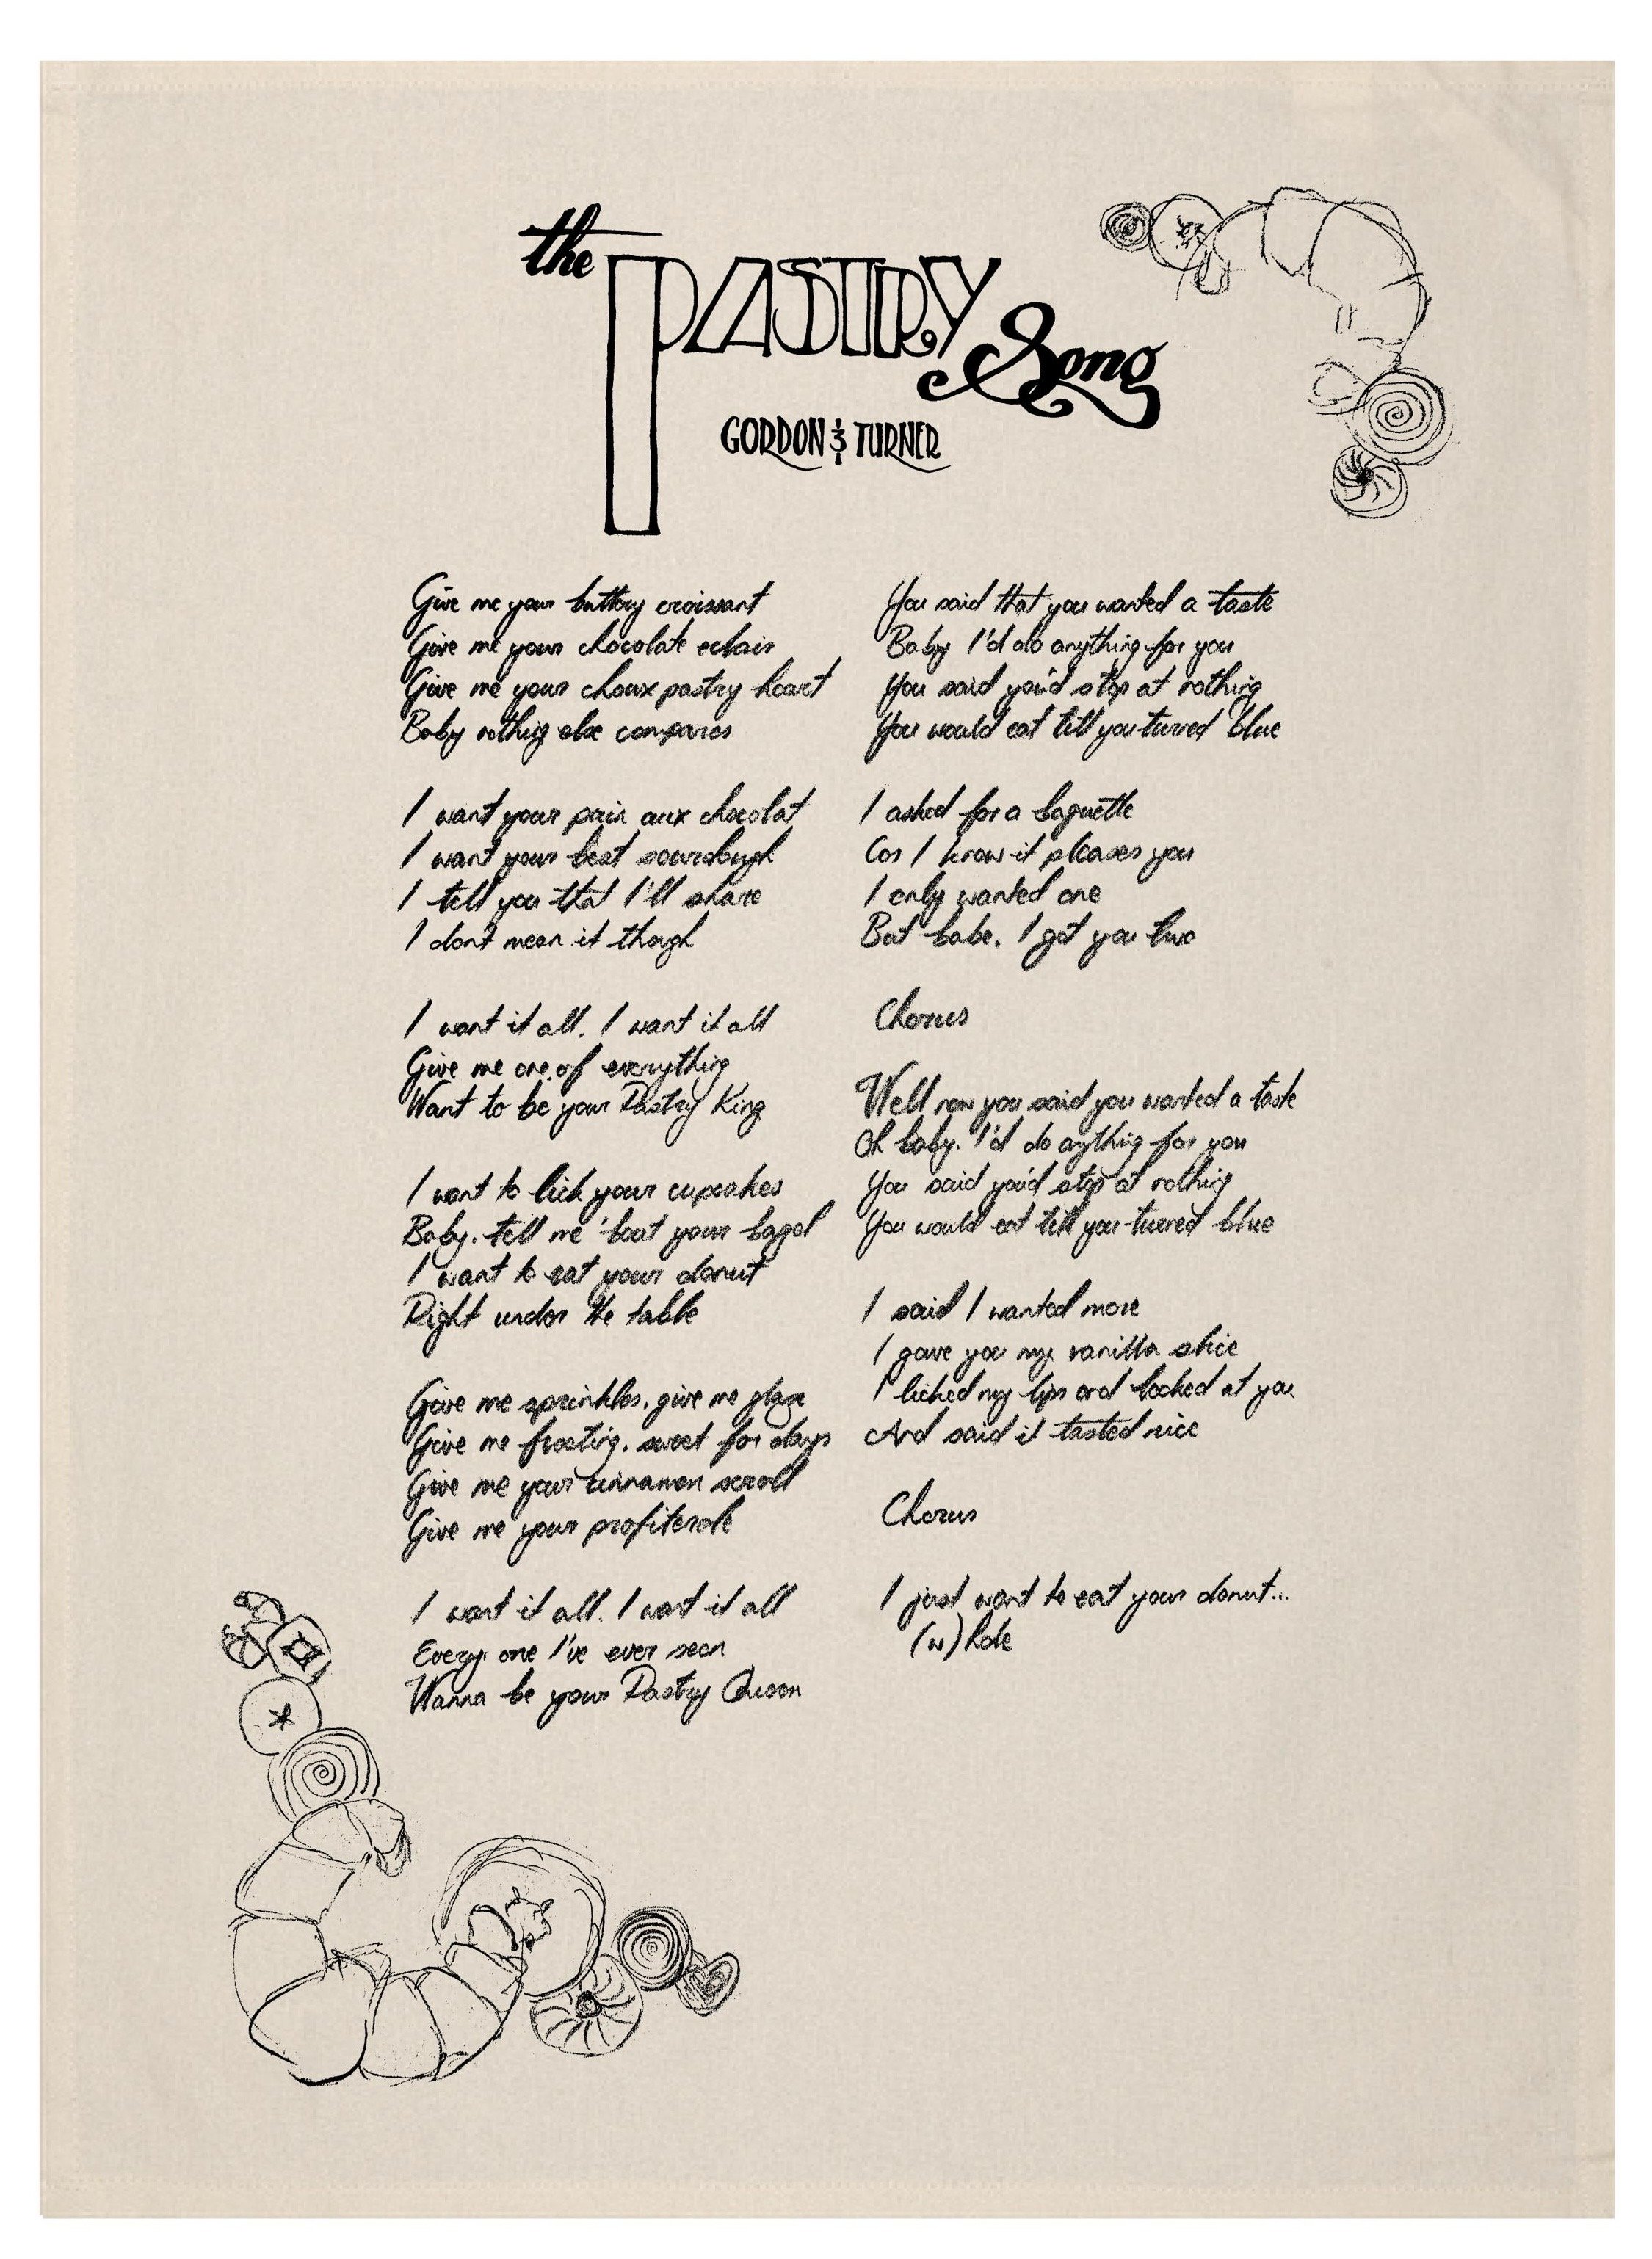 the PASTRY Song
GORDON & TURNER
Give me your buttery croissant
Give me your chocolate eclair
Give me your choux pastry heart
Baby nothing else compares
I want your pain aux chocolat
I want your best sourdough
I tell you that I'll share
I don't mean it though
I want it all, I want it all
Give me one of everything
Want to be your Pastry King
I want to lick your cupcakes
Baby, tell me 'bout your bagel
I want to eat your donut
Right under the table
Give me sprinkles, give me glaze
Give me frosting, sweet for days
Give me your cinnamon scroll
Give me your profiterole
I want it all, I want it all
Every one I've ever seen
Wanna be your Pastry Queen
You said that you wanted a taste
Baby I'd do anything for you
You said you'd stop at nothing
You would eat till you turned blue
I asked for a baguette
Cos I know it pleases you
I only wanted one
But babe, I got you two
Chorus
Well now you said you wanted a taste
Oh baby, I'd do anything for you
You said you'd stop at nothing
You would eat till you turned blue
I said I wanted more
I gave you my vanilla slice
I licked my lips and looked at you
And said it tasted nice
Chorus
I just want to eat your donut...
(w)hole